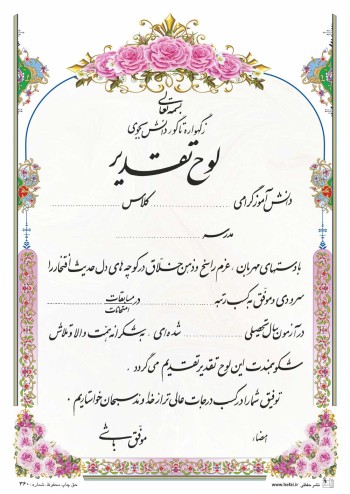 بسمه تعالی
ز گهواره تا گور دانش بجوی
لوح تقدیر
دانش آموز گرامی .................... کلاس ....................
مدرسه ....................
با دستهای مهربان ، عزم راسخ و ذهن خلاق در کوچه های دل حدیث افتخار را
سرودی و موفق به کسب رتبه .................... در مسابقات امتحانات ....................
در آزمون سال تحصیلی .................... شده ای . به شکرانه همت والا و تلاش
شکوهمندت این لوح تقدیر تقدیم می گردد .
توفیق شما را در کسب درجات عالی تر از خداوند سبحان خواستاریم .
امضاء
موفق باشی
نشر حافظی www.hefzi.ir
حق چاپ محفوظ. شماره : ۳۶۰